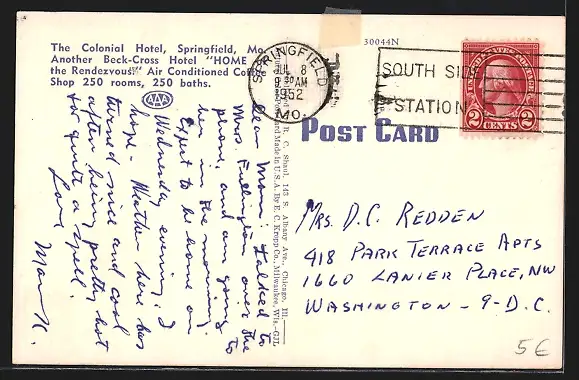 The Colonial Hotel, Springfield, Mo.
Another Beck-Cross Hotel "HOME of
the Rendezvous." Air Conditioned Coffee
Shop 250 rooms, 250 baths.
AAA
30044N
SPRINGFIELD
JUL 8
9 30 AM
1952
MO.
SOUTH SIDE
STATION
UNITED STATES POSTAGE
2 CENTS 2
POST CARD
R. C. Shaul, 145 S. Albany Ave., Chicago, Ill.
Post Card Made in U.S.A. By E. C. Kropp Co., Milwaukee, Wis.
Dear Mom: Talked to
Mrs. Fullington over the
phone, and am going to
her in the morning.
Expect to be home on
Wednesday evening, I
hope. Weather here has
turned nice and cool
after being pretty hot
for quite a spell.
Love
Mow K.
MRS. D.C. REDDEN
418 PARK TERRACE APTS
1660 LANIER PLACE, NW
WASHINGTON - 9 - D.C.
5€